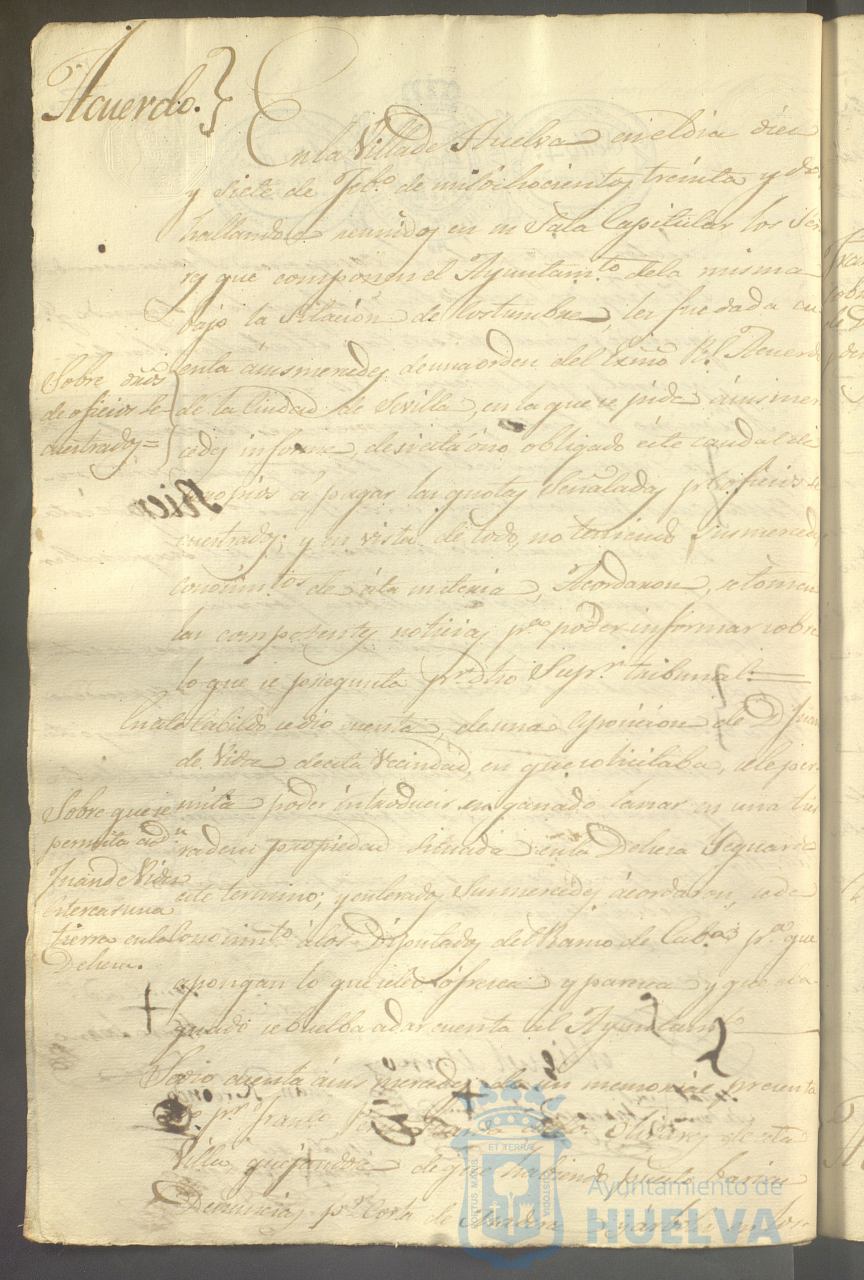 Acuerdo.}
En la Villa de Huelva en el dia diez
y siete de Feb.o de mil ochocientos treinta y dos
hallandose reunidos en su Sala Capitular los Seño
res que componen el Ayuntam.to de la misma
bajo la Citacion de Costumbre, les fue dada cu
enta á sus mercedes de una orden del Exmo R.l Acuerdo
de la Ciudad de Sevilla, en la que se pide á sus mer
cedes informe, de si está ó no obligado este caudal de
propios á pagar las quotas Señaladas p.r oficios se
cuentrados; y en vista de todo, no teniendo sus mercedes
conocim.tos de la materia, Acordaron, se tomen
las competentes noticias p.a poder informar sobre
lo que se pregunta p.r dho Sup.r tribunal=
Sobre dros
de oficios Se-
cuentrados=
En este Cabildo se dio cuenta, de una esposicion de D Juan
de Vides de esta Vecindad, en que solicitaba, se le per
mita poder introducir su ganado lanar en una tier
ra de su propiedad situada en la Dehesa Yeguariza
este termino; y enterados Sus mercedes acordaron, se de
conocim.to á los Diputados del Ramo de Cab.as p.a que
espongan lo que se les ofresca y paresca y que eva
quado se buelba a dar cuenta al Ayuntam.to
Sobre que se
permita a D.n
Juan de Vides
tierra en la
Dehesa.
Se dio cuenta á sus mercedes de un memorial presenta
do p.r Fran.co Guarda de los Olivares de esta
Villa, quejandose de que habiendo puesto barias
Denuncias p.r Corta de Madera y árboles en los
Ayuntamiento de
HUELVA